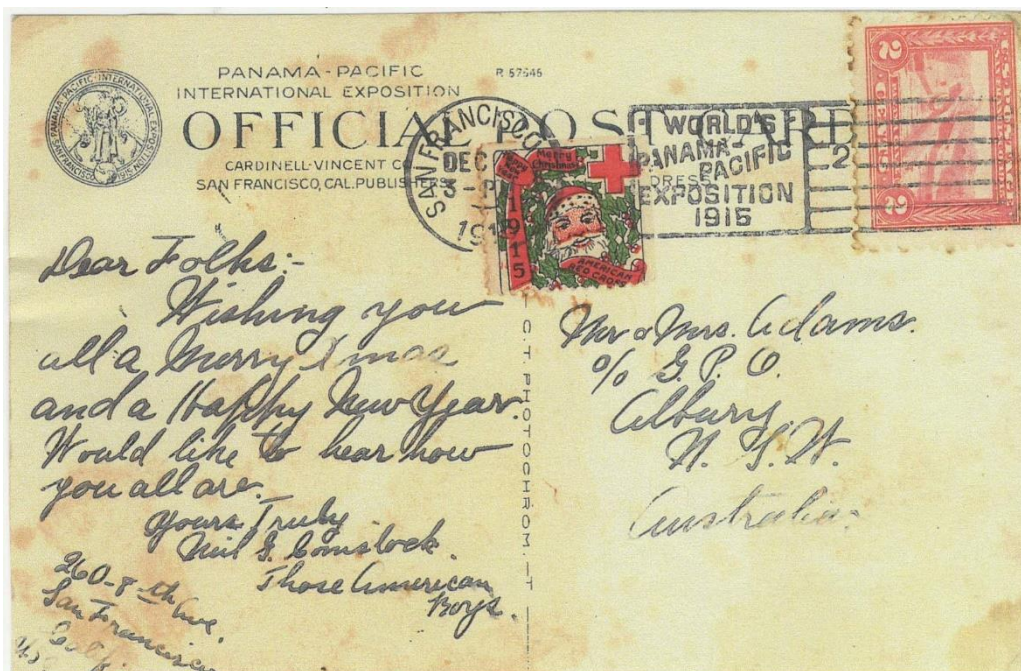 PANAMA-PACIFIC
INTERNATIONAL EXPOSITION
R 57645
OFFICIAL POST CARD
CARDINELL-VINCENT CO
SAN FRANCISCO, CAL. PUBLISHERS
PANAMA PACIFIC INTERNATIONAL EXPOSITION
SAN FRANCISCO
SAN FRANCISCO
DEC
3-P
191
WORLD'S
PANAMA-
PACIFIC
EXPOSITION
1915
2
2 2
Merry
Christmas
1915
AMERICAN
RED CROSS
DRESS
Dear Folks:-
Wishing you
all a Merry Xmas
and a Happy New Year.
Would like to hear how
you all are.
Yours Truly
Neil G. Comstock.
Those American
Boys.
260-8th Ave.
San Francisco
C.T. PHOTOCHROM.-T
Mr & Mrs. Adams.
c/o G. P. O.
Albury
N. S. W.
Australia.